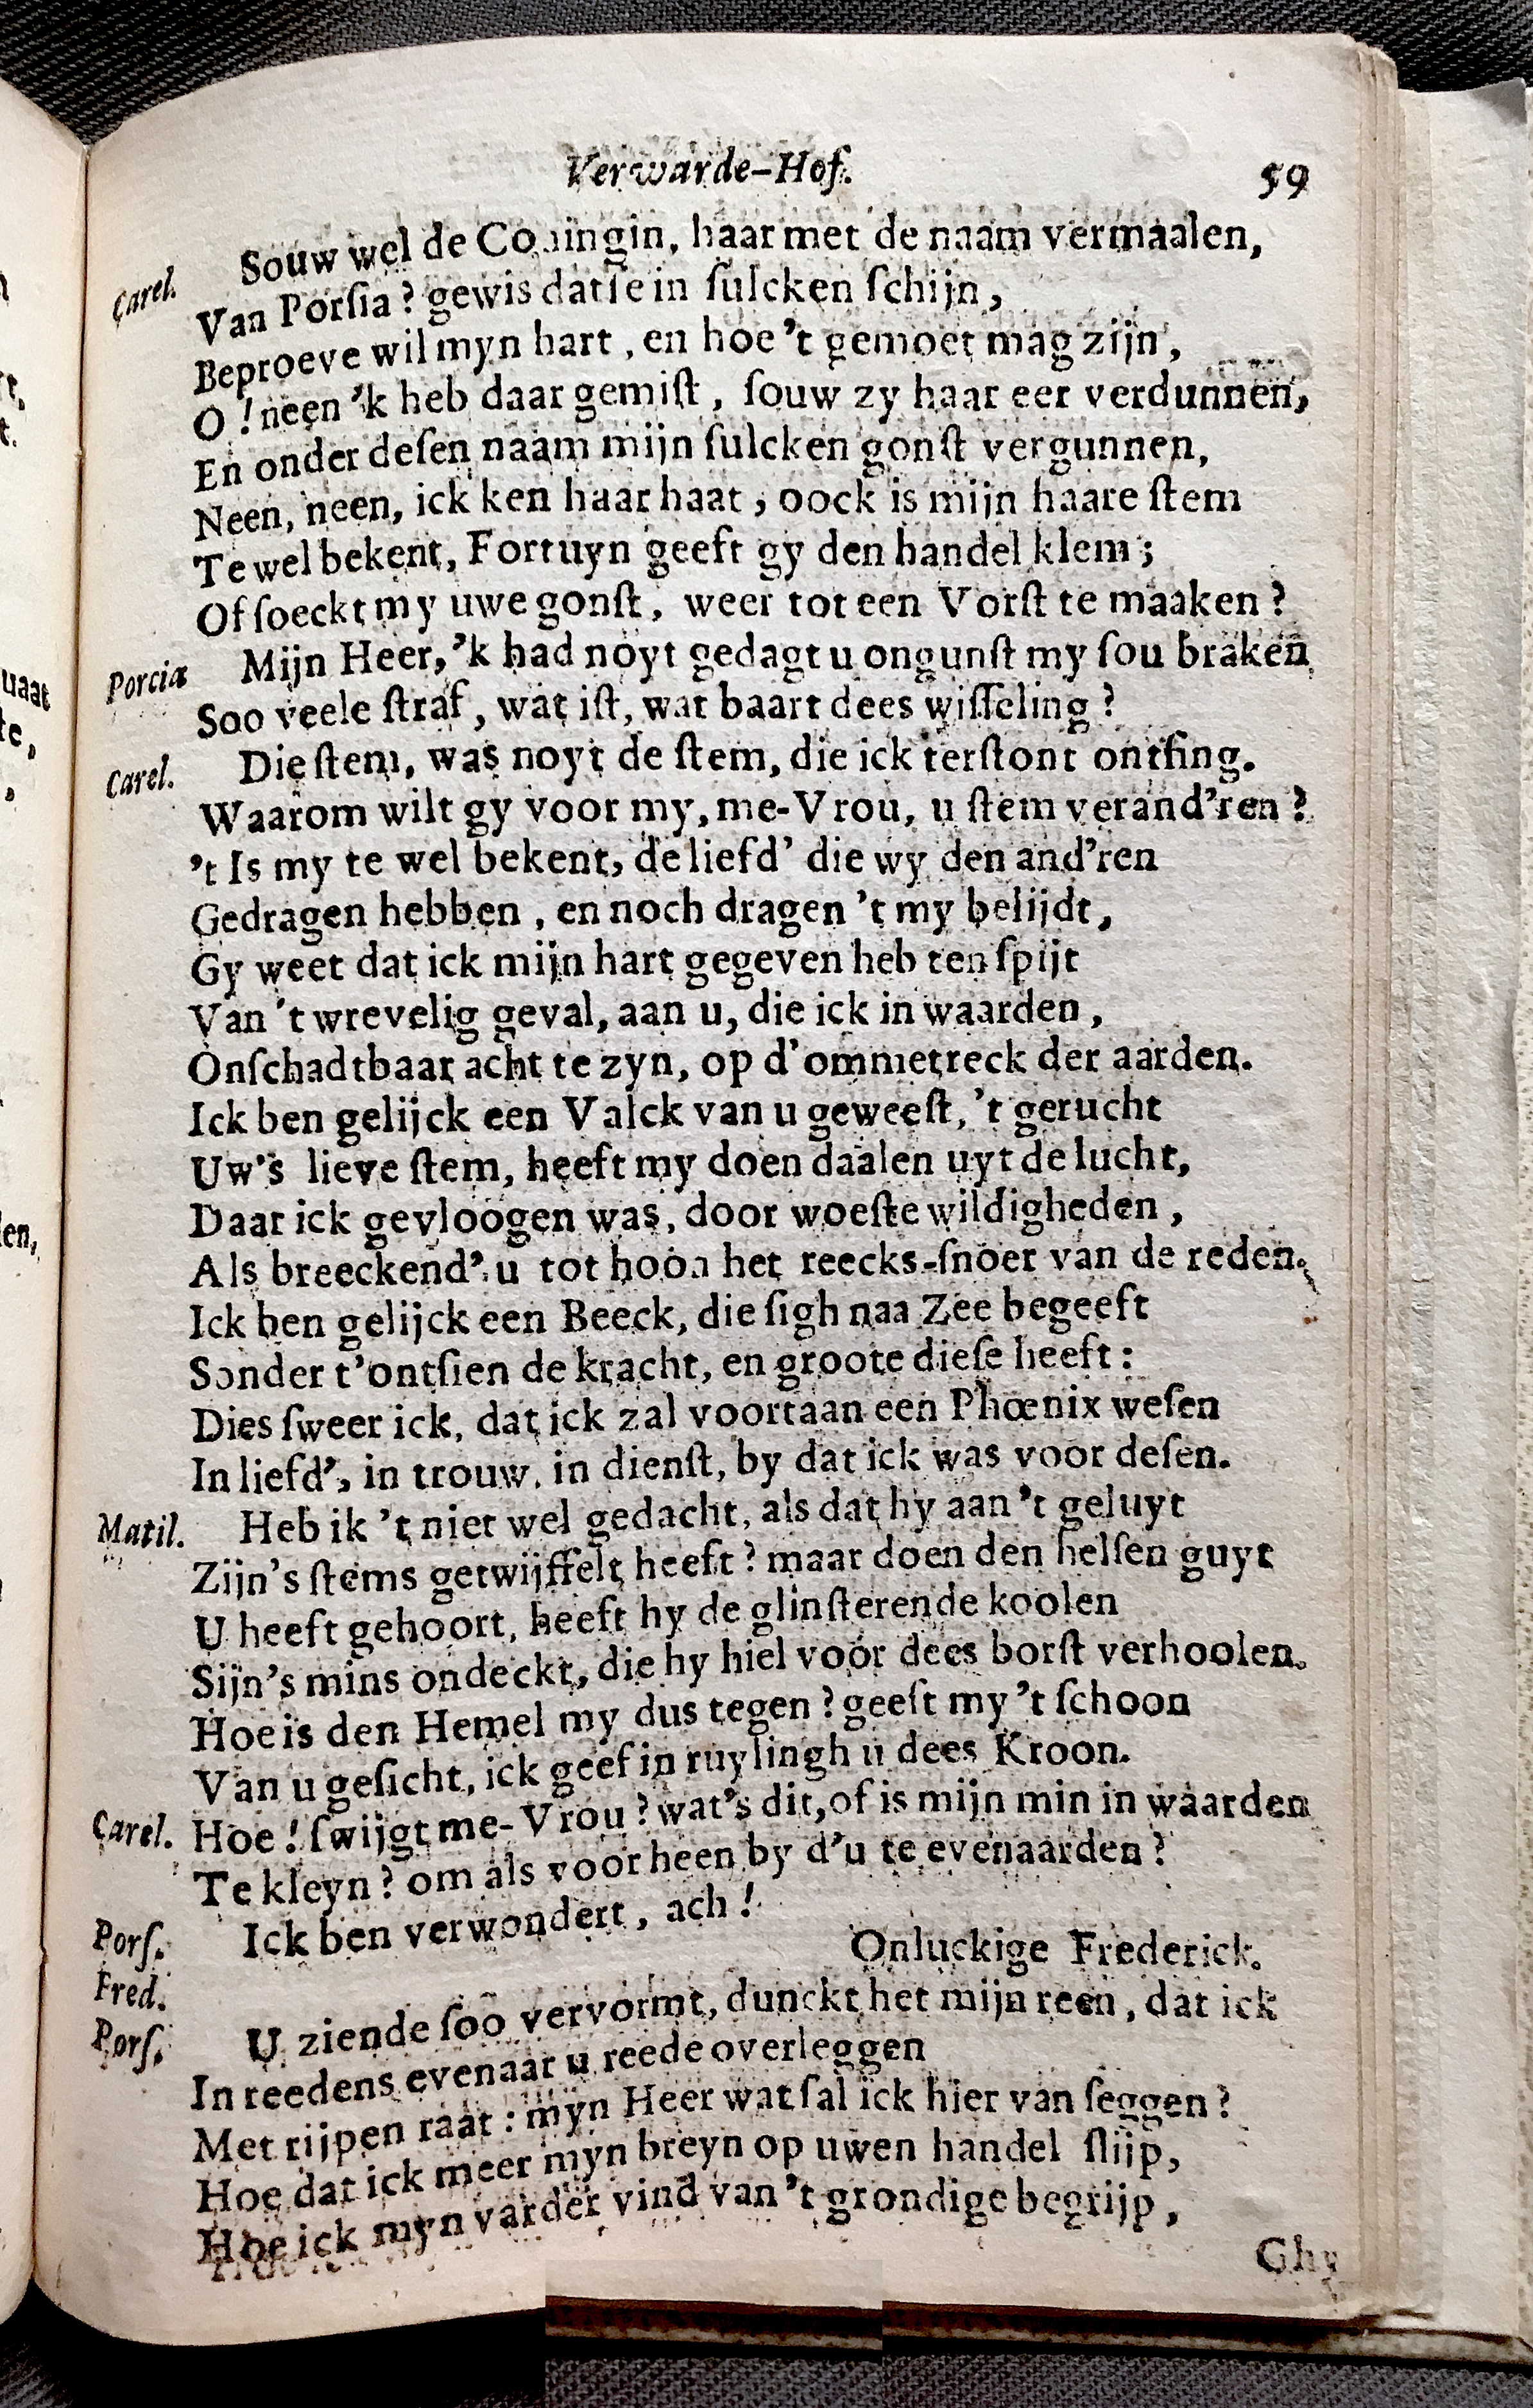 Verwarde-Hof. 59
Carel. Souw wel de Coningin, haar met de naam vermaalen,
Van Porsia? gewis datse in sulcken schijn,
Beproeve wil myn hart, en hoe 't gemoet mag zijn,
O! neen 'k heb daar gemist, souw zy haar eer verdunnen,
En onder desen naam mijn sulcken gonst vergunnen,
Neen, neen, ick ken haar haat, oock is mijn haare stem
Te wel bekent, Fortuyn geeft gy den handel klem;
Of soeckt my uwe gonst, weer tot een Vorst te maaken?
Porcia Mijn Heer, 'k had noyt gedagt u ongunst my sou braken
Soo veele straf, wat ist, wat baart dees wisseling?
Carel. Die stem, was noyt de stem, die ick terstont ontfing.
Waarom wilt gy voor my, me-Vrou, u stem verand'ren?
't Is my te wel bekent, de liefd' die wy den and'ren
Gedragen hebben, en noch dragen 't my belijdt,
Gy weet dat ick mijn hart gegeven heb ten spijt
Van 't wrevelig geval, aan u, die ick in waarden,
Onschadtbaar acht te zyn, op d'ommetreck der aarden.
Ick ben gelijck een Valck van u geweest, 't gerucht
Uw's lieve stem, heeft my doen daalen uyt de lucht,
Daar ick gevloogen was, door woeste wildigheden,
Als breeckend' u tot hoon het reecks-snoer van de reden.
Ick ben gelijck een Beeck, die sigh naa Zee begeeft
Sonder t'ontsien de kracht, en groote diese heeft:
Dies sweer ick, dat ick zal voortaan een Phœnix wesen
In liefd', in trouw, in dienst, by dat ick was voor desen.
Matil. Heb ik 't niet wel gedacht, als dat hy aan 't geluyt
Zijn's stems getwijffelt heeft? maar doen den helsen guyt
U heeft gehoort, heeft hy de glinsterende koolen
Sijn's mins ondeckt, die hy hiel voor dees borst verhoolen.
Hoe is den Hemel my dus tegen? geeft my 't schoon
Van u gesicht, ick geef in ruylingh u dees Kroon.
Carel. Hoe! swijgt me-Vrou? wat's dit, of is mijn min in waarden
Te kleyn? om als voor heen by d'u te evenaarden?
Pors. Ick ben verwondert, ach!
Fred. Onluckige Frederick.
Pors. U ziende soo vervormt, dunckt het mijn reen, dat ick
In reedens evenaar u reede overleggen
Met rijpen raat: myn Heer wat sal ick hier van seggen?
Hoe dat ick meer myn breyn op uwen handel slijp,
Hoe ick myn varder vind van 't grondige begrijp,
Ghy